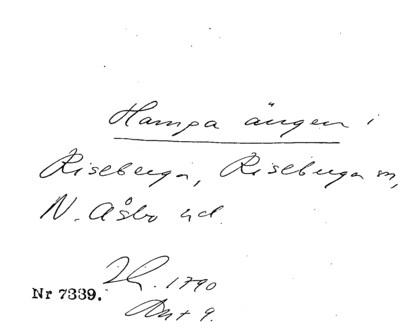 Hampa ängen i
Riseberga, Riseberga sn,
N. Åsbo hd.
Nr 7339.
1790